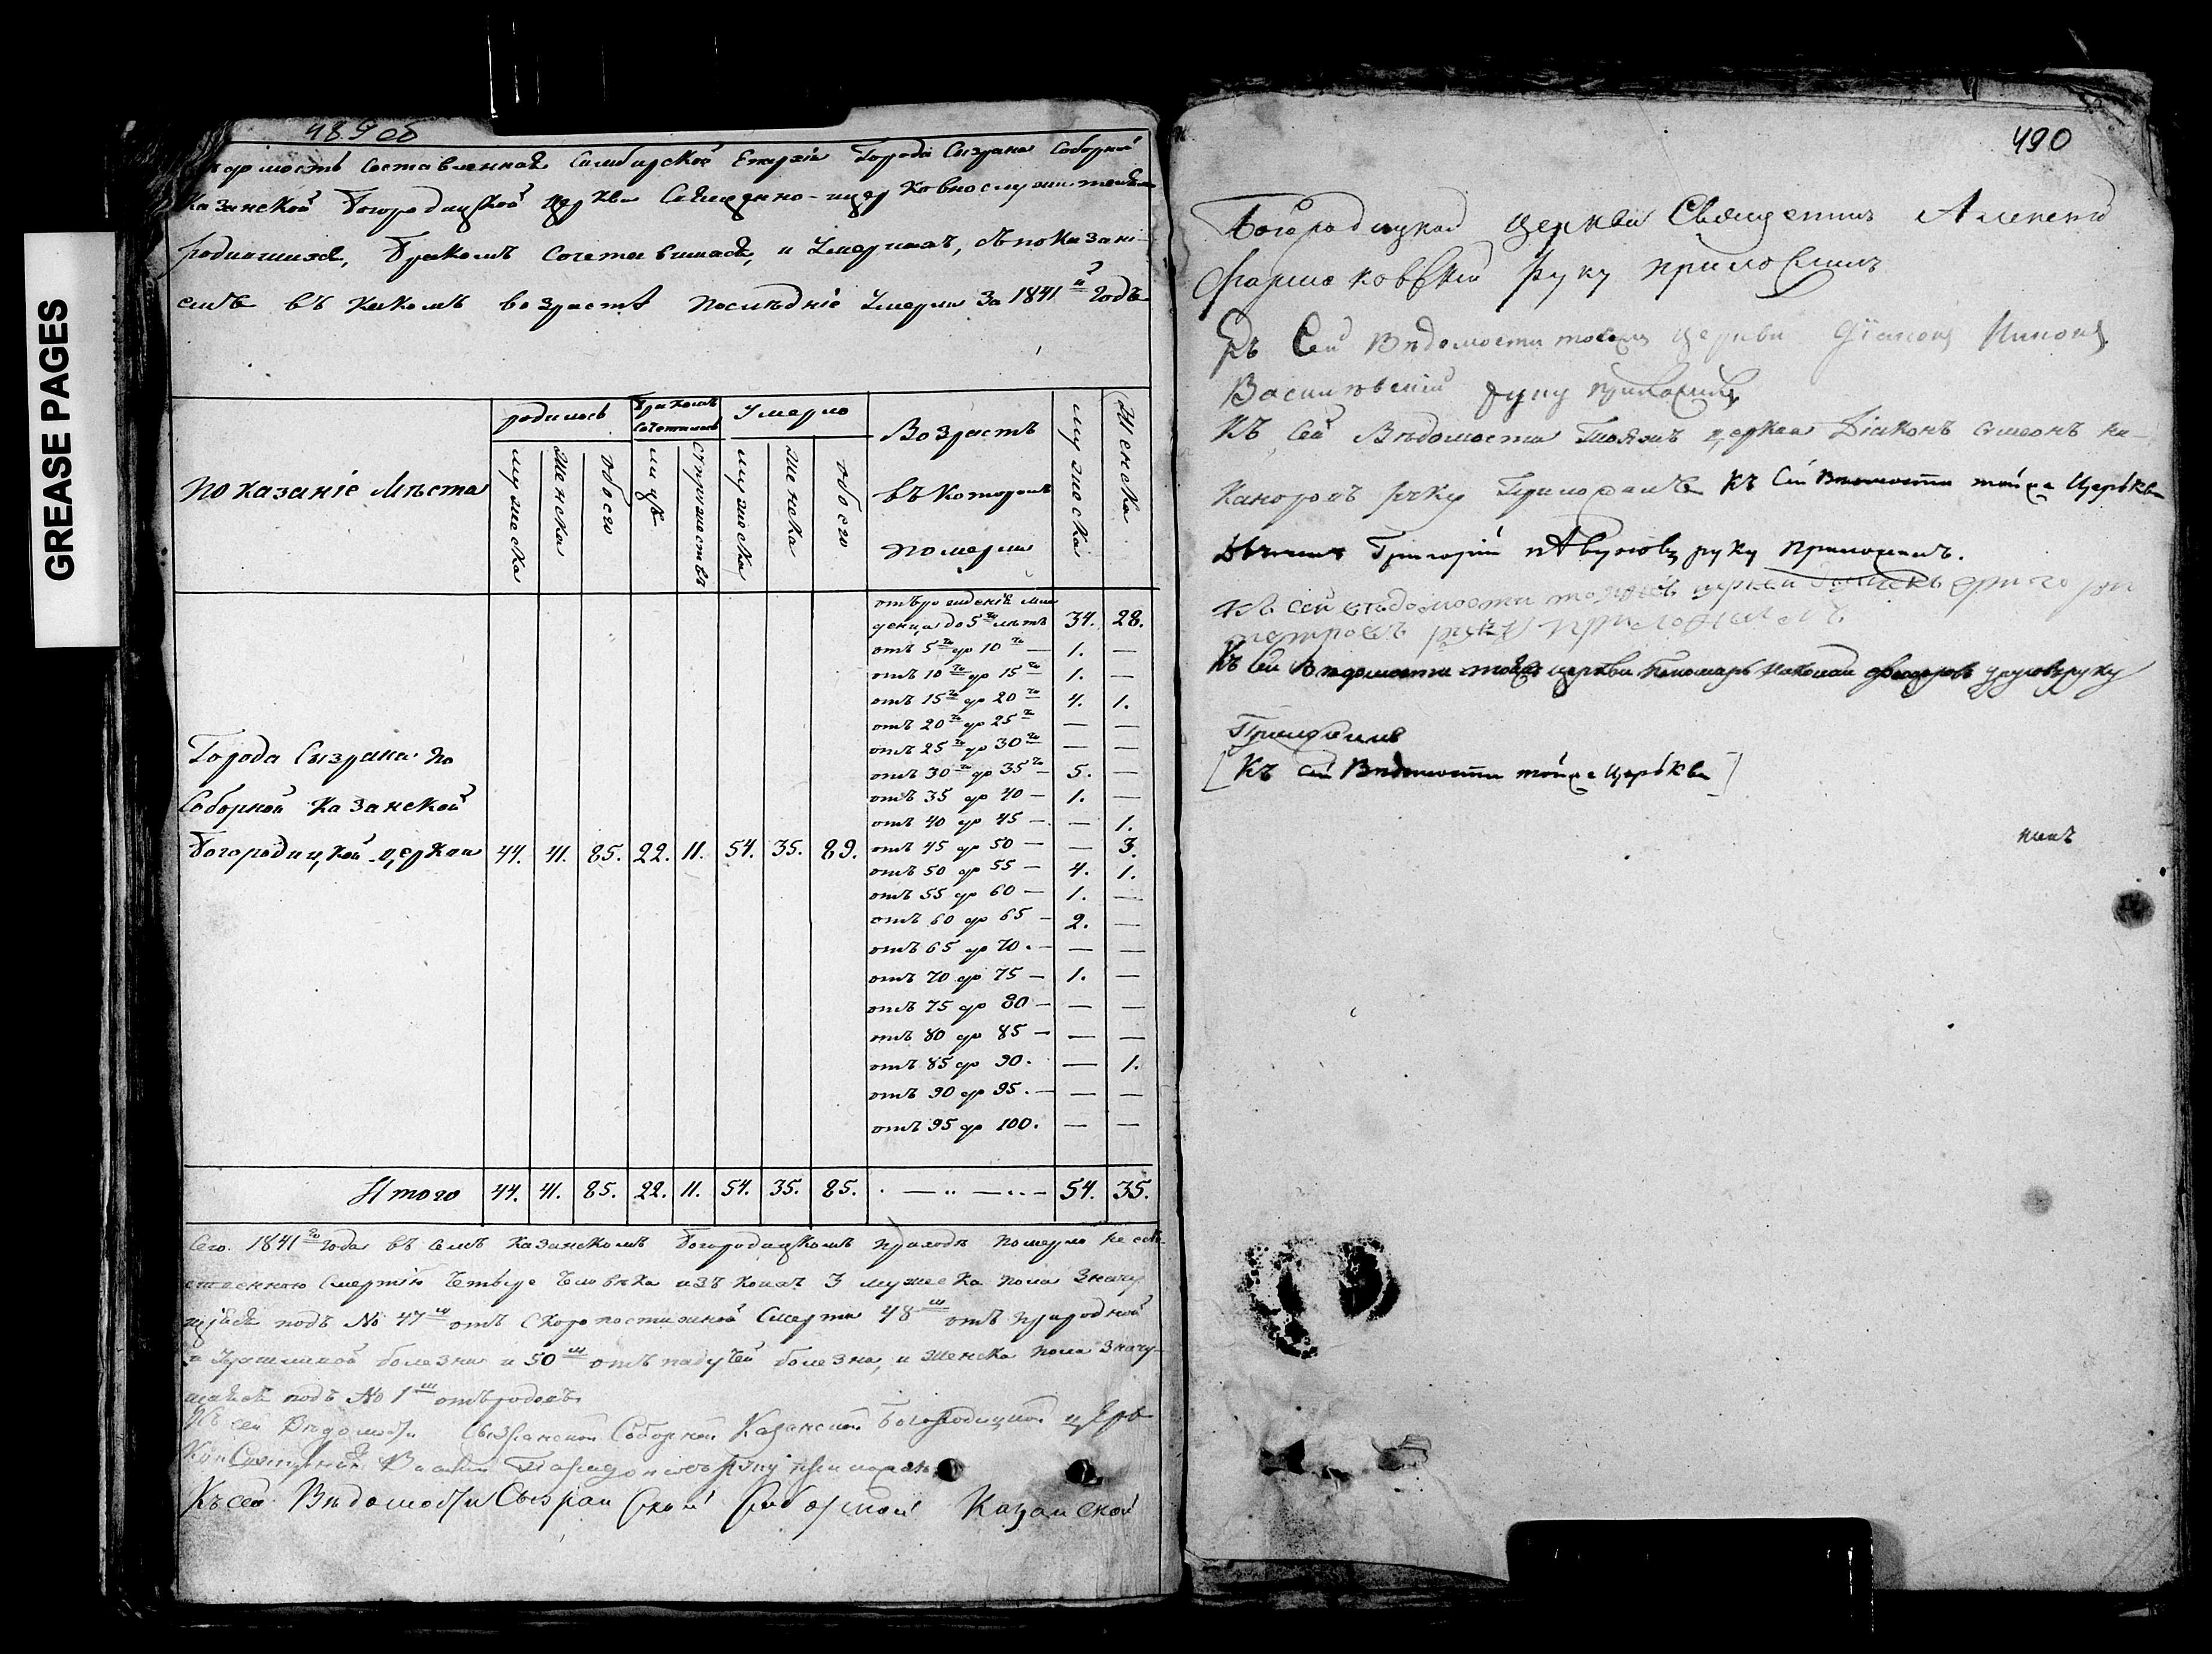 GREASE PAGES
489 об
Вѣдомость составленная Симбирской Епархіи Города Сызрана Соборной
Казанской Богородицкой церкви Священно-церковнослужителями
родившихся, бракомъ сочетавшихся, и умершихъ, съ показані-
емъ въ какомъ возрастѣ послѣдніе умерли за 1841й годъ
Показаніе мѣста
родилось
мужеска
женска
обоего
бракомъ сочеталось
лицъ
супружествъ
умерло
мужеска
женска
обоего
Возрастъ
въ которомъ
померли
мужеска
женска
отъ рожденія мла
денца до 5ти лѣтъ 34. 28.
отъ 5ти до 10ти — 1. —
отъ 10ти до 15ти 1. —
отъ 15ти до 20ти 4. 1.
отъ 20ти до 25ти — —
отъ 25ти до 30ти — —
отъ 30ти до 35ти 5. —
отъ 35 до 40 — 1. —
отъ 40 до 45 — — 1.
отъ 45 до 50 — — 3.
отъ 50 до 55 — 4. 1.
отъ 55 до 60 — 1. —
отъ 60 до 65 — 2. —
отъ 65 до 70. — — —
отъ 70 до 75 — 1. —
отъ 75 до 80 — — —
отъ 80 до 85 — — —
отъ 85 до 90. — 1.
отъ 90 до 95. — — —
отъ 95 до 100. — —
Города Сызрана по
Соборной Казанской
Богородицкой церкви 44. 41. 85. 22. 11. 54. 35. 89.
Итого 44. 41. 85. 22. 11. 54. 35. 85. 54. 35.
Сего 1841го года въ семъ Казанскомъ Богородицкомъ приходѣ померло не есте
ственною смертію четыре человѣка изъ коихъ 3 мужеска пола значу
щіеся подъ № 47м отъ скоропостижной смерти 48м отъ природной
и 50м отъ падучей болезни, и женска пола значу-
щаяся подъ № 1м отъ родовъ
Къ сей Вѣдомости Сызранской Соборной Казанской Богородицкой церк
Священникъ руку приложилъ
Къ сей Вѣдомости Сызранской Соборной Казанской
490
Богородицкой церкви Священникъ Алексей
Фармаковский руку приложилъ
Къ Сей Вѣдомости тояже церкви Діаконъ
Васильевскій руку приложилъ
Къ сей Вѣдомости тояжъ церкви Діаконъ Симеонъ Ни-
каноровъ руку приложилъ Къ Сей Вѣдомости тойже Церькви
Григорій руку приложилъ.
къ сей вѣдомости тояжъ церкви
петровъ руку приложилъ
Къ сей Вѣдомости тойже церкви Пономарь Николай руку
Приложилъ
[Къ сей Вѣдомости тойже Церькви]